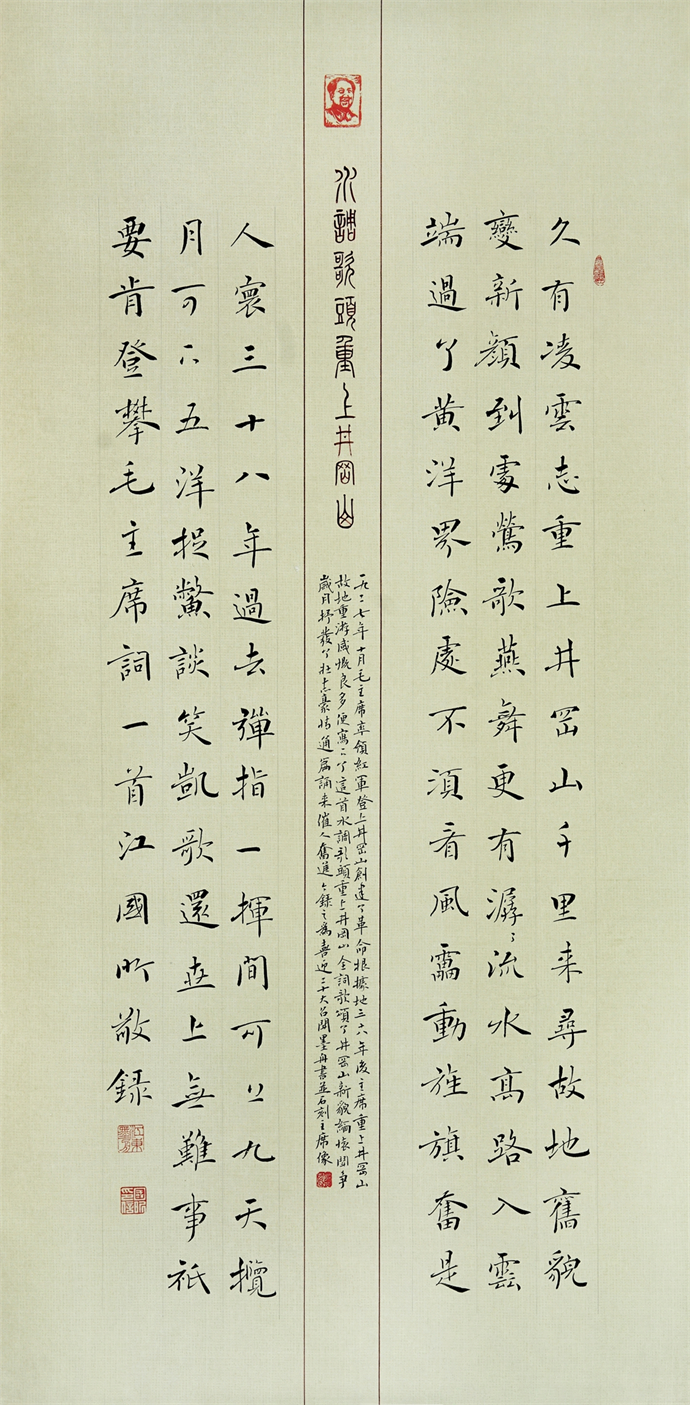 久有凌雲志重上井岡山千里来尋故地舊貌
變新顔到處鶯歌燕舞更有潺〻流水高路入雲
端過了黄洋界險處不須看風雷動旌旗奮是
水調歌頭重上井岡山
一九二七年十月毛主席率領紅軍登上井岡山創建了革命根據地三六年後主席重上井岡山
故地重游感慨良多便寫下了這首水調歌頭重上井岡山全詞歌頌了井岡山新貌緬懷鬥爭
歲月抒發了壯志豪情通篇誦来催人奮進今録之為喜迎二十大召開墨舟書並石刻主席像
人寰三十八年過去彈指一揮間可上九天攬
月可下五洋捉鱉談笑凱歌還世上無難事祇
要肯登攀毛主席詞一首江國昕敬録